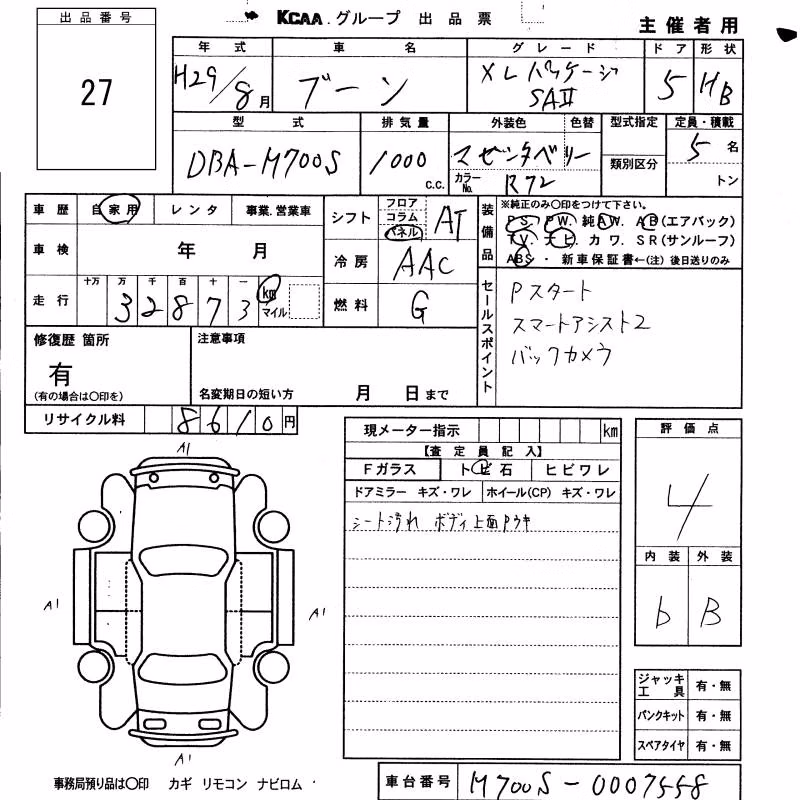 KCAA.グループ 出品票
主催者用
出品番号
27
年式 車名 グレード ドア 形状
H29/8月 ブーン XLパッケージ SAⅡ 5 HB
型式 排気量 外装色 色替 型式指定 定員・積載
DBA-M700S 1000 c.c. マゼンタベリー カラーNo. R72 類別区分 5名 トン
車歴 自家用 レンタ 事業.営業車
車検 年 月
走行 十万 万 千 百 十 一 km マイル
32873
シフト フロア コラム パネル AT
冷房 AAC
燃料 G
装備品
※純正のみ〇印をつけて下さい。
PS. PW. 純AW. AB(エアバック)
TV. ナビ. カワ. SR(サンルーフ)
ABS・新車保証書←(注)後日送りのみ
セールスポイント
Pスタート
スマートアシスト2
バックカメラ
修復歴 箇所
有
(有の場合は〇印を)
注意事項
名変期日の短い方 月 日まで
リサイクル料 8610円
現メーター指示 km
【査定員記入】
Fガラス トビ石 ヒビワレ
ドアミラー キズ・ワレ ホイール(CP) キズ・ワレ
シート汚れ ボディ上面Pウキ
評価点
4
内装 外装
b B
A1
A1
A1
A1
ジャッキ工具 有・無
パンクキット 有・無
スペアタイヤ 有・無
事務局預り品は〇印 カギ リモコン ナビロム
車台番号 M700S-0007558